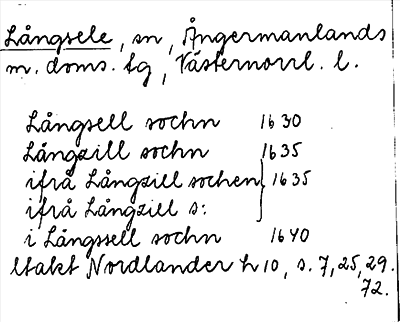 Långsele, sn, Ångermanlands
m. doms. tg, Västernorrl. l.
Långsell sochn 1630
Långzill sochn 1635
ifrå Långzill sochen } 1635
ifrå Långzill s:
i Långssell sochn 1640
Utakt Nordlander h 10, s. 7, 25, 29.
72.